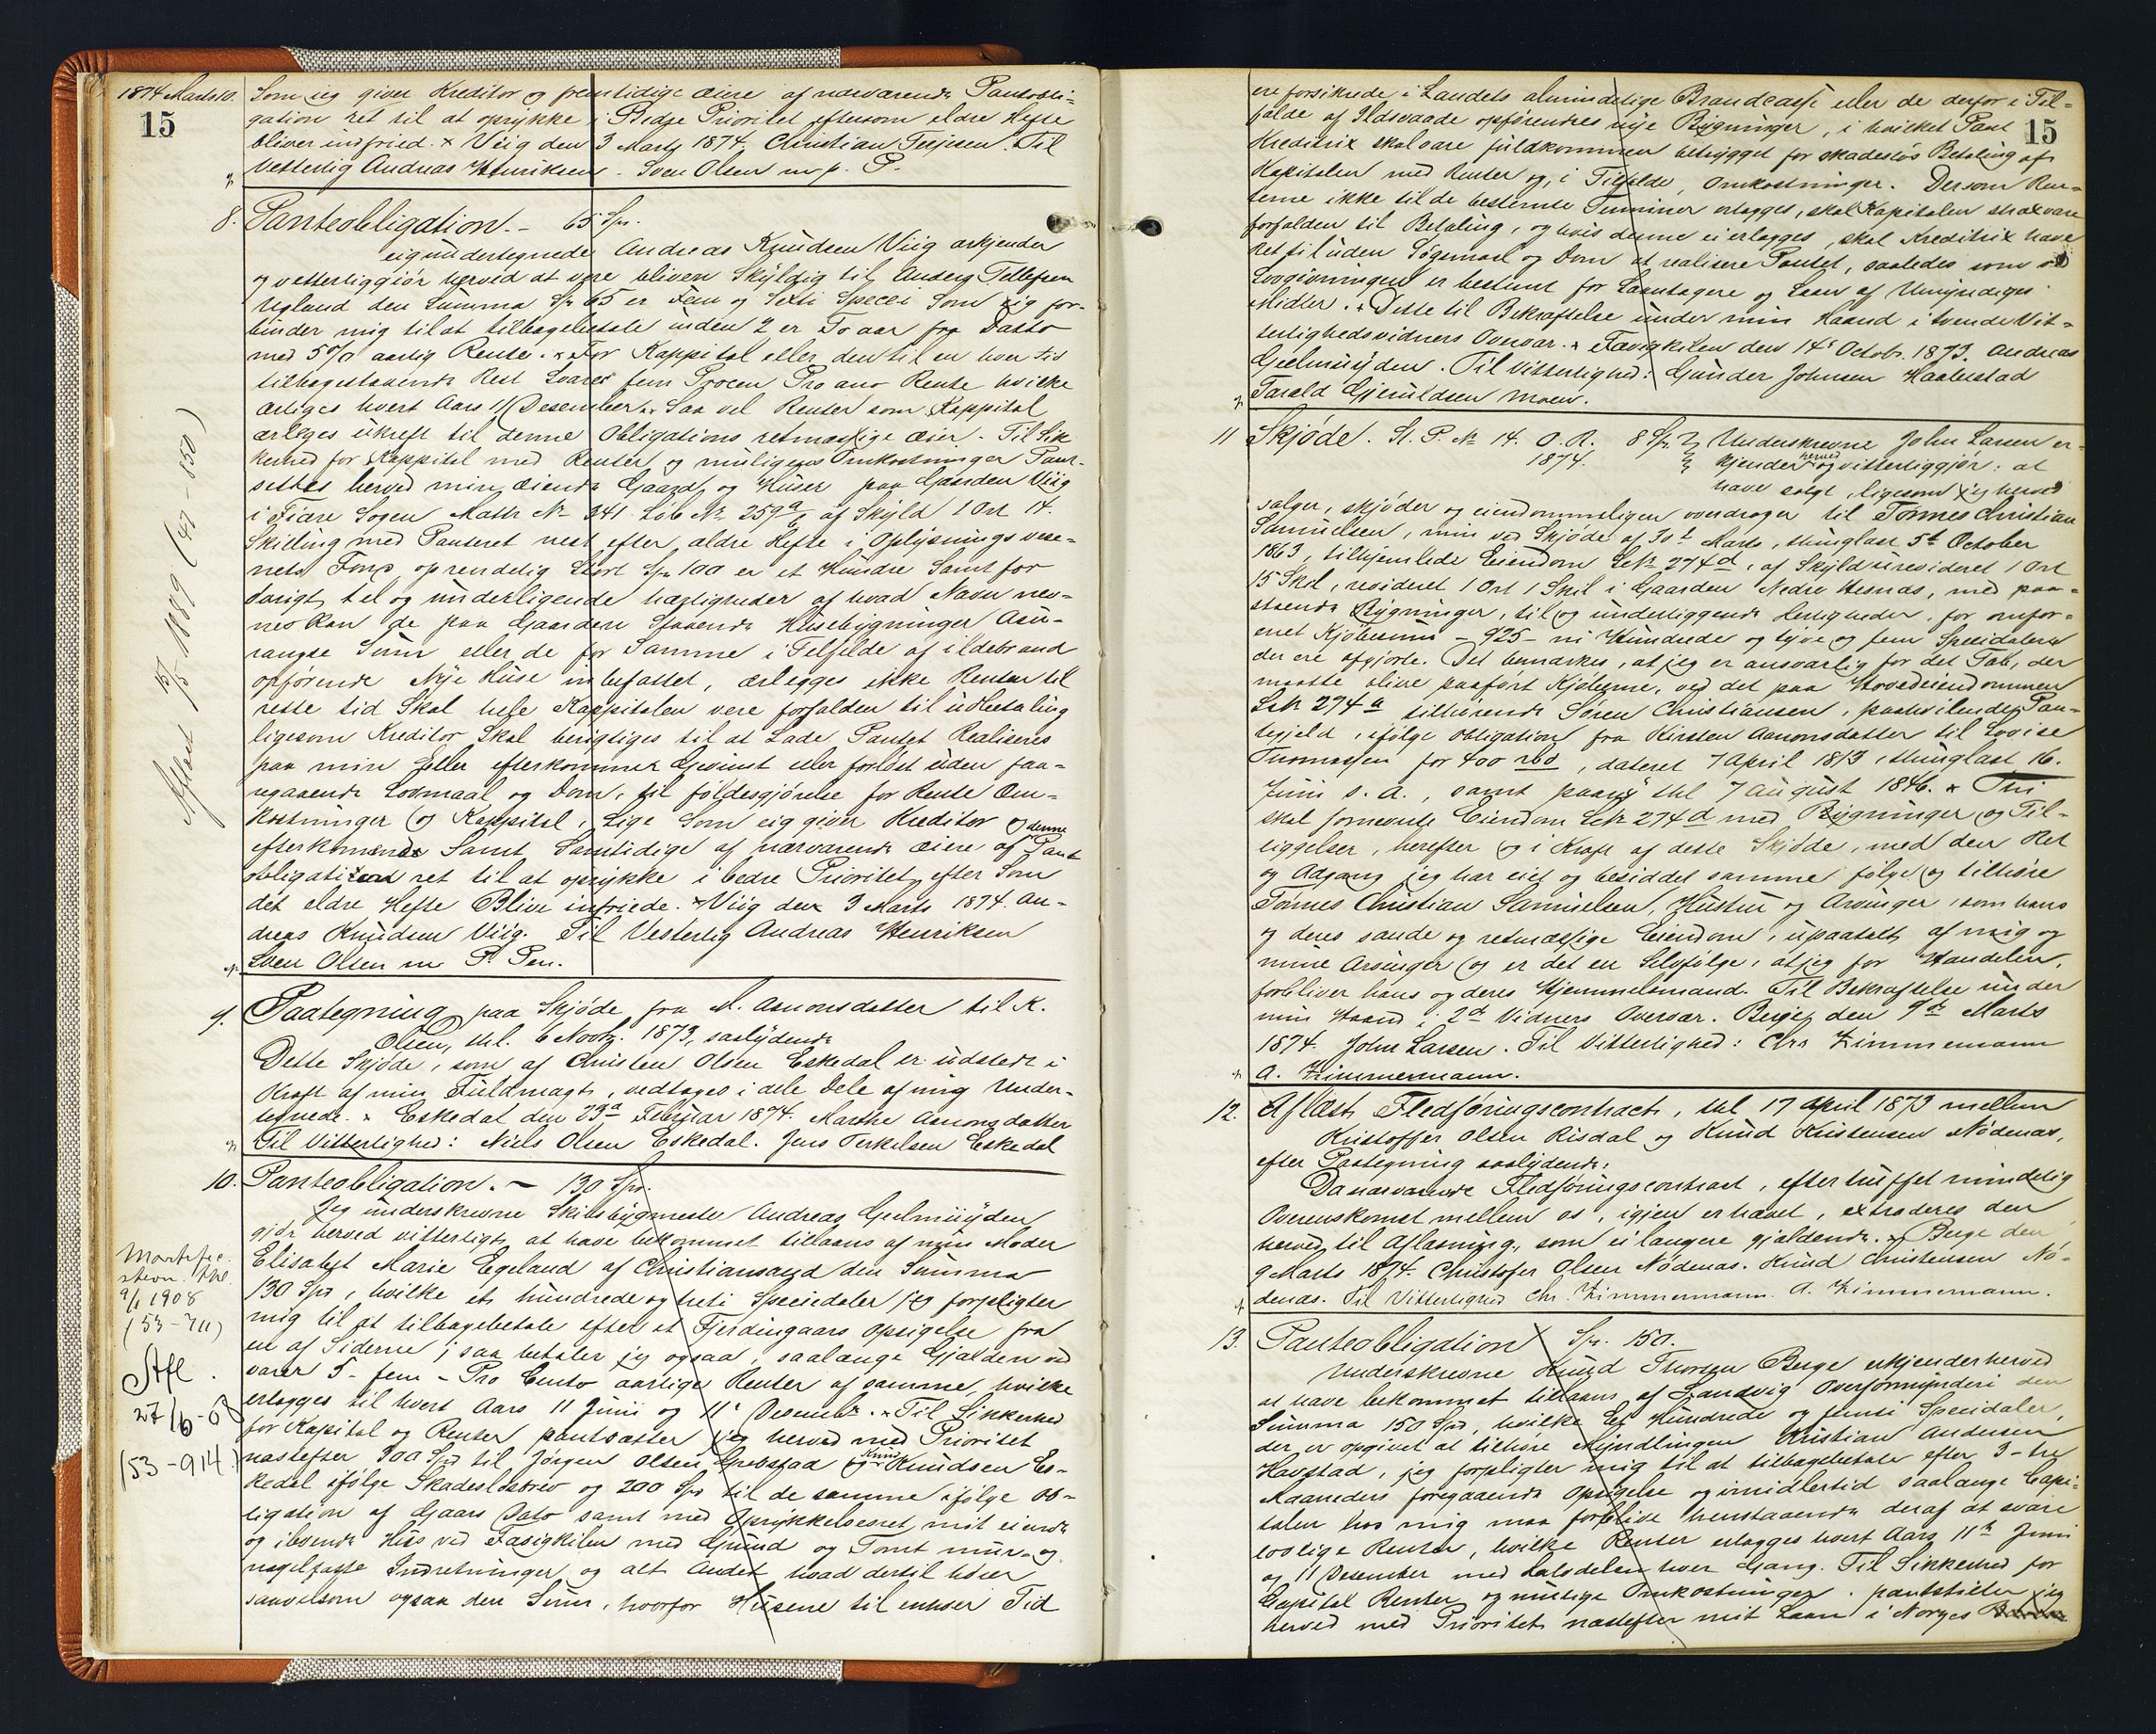 1874 Marts 10.
15
Som jeg giver Kreditor og fremtidige æiere af nærværende Pantobli-
gation ret til at oprykke i Bedre Prioritet eftersom eldre Hefte
bliver indfried. × Viig den 3 Marts 1874. Christian Terjesen. Til
Vetterlig Andreas Henriksen. Sven Olsen m. p. P.
8. Panteobligation. – 65 Spr.
eigundertegnede Andreas Knudsen Viig erkjender
og vetterliggiør herved at vere bliven Skyldig til Anders Tellefsen
Ugland den Summa Sp 65 er Fem og Sexti Specei Som eig for-
binder mig til at tilbagebetale inden 2 er To aar fra Datto
med 5 % aarlig Rente. × For Kappital eller den til en hver tid
tilbagestaaende Rest Svares fem Procen Pro ano Rente hvilke
ærliges hvert Aars 11 Desember. Saa vel Renter som Kappital
ærleges ukreft til denne Obligations retmæssige æier. Til Sik
kerhed for Kappital med Renter og muligens Omkostninger Pant-
settes herved min æiende Gaard og Huser paa Gaarden Viig
i Fiære Sogen Mattr № 341 Løb № 259 a/b af Skyld 1 Ort 14.
Skilling med Panteret nest efter ældre Hefte i Oplysningsvese-
nets Fond oprendelig Stort Sp 100 er et Hundre Samt for
øvrigt tel og underligende hærligheder af hvad Navn nev-
nes Kan de paa Gaarden Staaende Husebygninger Asu-
rangse Sum eller de for Samme i Telfelde af ildebrand
opførende Nye Huse inbefattet, ærlegges ikke Renten til
rette tid Skal hele Kappitalen vere forfalden til udbetaling
ligesom Kreditor Skal berigtiges til at Lade Pantet Realiseres
paa min Eller efterkommer Gevinst eller forlist uden foa-
regaaende Lovmaal og Dom, til foldesgjørelse for Rente Om-
kostninger og Kappital, Lige Som eig giver Kreditor og denne
efterkomende Samt Samtidige af nærværende æiere af Pant
obligation ret til at oprykke i bedre Prioritet efter Som
det eldre Hefte Blive infriede. × Viig den 3 Marts 1874. An-
dreas Knudsen Viig. Til Vesterlig Andreas Henriksen
Sven Olsen m P. Pen.
Aflæst 15/5 1889 (47-850)
9. Paategning paa Skjøde fra M. Aanonsdatter til K.
Olsen, thl. 6 Novbr. 1873, saalydende
Dette Skjøde, som af Christen Olsen Eskedal er udstedt i
Kraft af min Fuldmagt, vedtages i alle Dele af mig Under-
tegnede. × Eskedal den 23de Februar 1874. Marthe Aanonsdatter
Til Vitterlighed: Niels Olsen Eskedal. Jens Terkelsen Eskedal
10. Panteobligation. – 130 Spr.
Jeg underskrevne Skibsbygmester Andreas Geelmuyden
gjør herved vitterligt, at have bekommet tillaans af min Moder
Elisabet Marie Egeland af Christiansand den Summa
130 Spd, hvilke et hundrede og treti Speciedaler jeg forpligter
mig til at tilbagebetale efter et Fjerdingaars Opsigelse fra
en af Siderne; saa betaler jeg ogsaa, saalænge Gjælden ved
varer 5 – fem – Pro Cento aarlige Renter af samme, hvilke
erlægges til hvert Aars 11 Juni og 11 Desembr. × Til Sikkerhed
for Kapital og Renter pantsætter jeg herved med Prioritet
næstefter 300 Spd til Jørgen Olsen Grebstad og Knud Knudsen Es-
kedal ifølge Skadesløsbrev og 200 Spd til de samme ifølge Ob-
ligation af Gaars Dato samt med Oprykkelsesret, mit eiende
og iboende Hus ved Favigkilen med Grund og Tomt mur- og
nagelfaste Indretninger og alt Andet hvad dertil hører
saavelsom ogsaa den Sum, hvorfor Husene til enhver Tid
Mortific.
stevn. thl.
9/1 1908
(53-711)
Afl.
27/6-08
(53-914)
15
ere forsikrede i Landets almindelige Brandcasse eller de derfor i Til-
fælde af Ildsvaade opførendes nye Bygninger, i hvilket Pant
Kreditrix skal være fuldkommen betrygget for skadesløs Betaling af
Kapitalen med Renter og, i Tilfælde, Omkostninger. Dersom Ren-
terne ikke til de bestemte Terminer erlægges, skal Kapitalen strax være
forfalden til Betaling, og hvis denne ei erlægges, skal Kreditrix have
Ret til uden Søgemaal og Dom at realisere Pantet, saaledes som i
Lovgivningen er bestemt for Laantagere og Laan af Umyndiges
Midler. × Dette til Bekræftelse under min Haand i tvende Vit-
terlighedsvidners Overvær. × Favigkilen den 14 Octob. 1873. Andreas
Geelmuyden. Til Vitterlighed: Gunder Johnsen Haaberstad
Tarald Gjeruldsen Moen.
11 Skjøde. St. P. № 14. O. R. 8 Sp. Underskrevne John Larsen er-
1874. kjender herved og vitterliggjør: at
have solgt, ligesom jeg herved
sælger, skjøder og eiendommeligen overdrager til Tønnes Christian
Samuelsen, min ved Skjøde af 30t Marts, thinglæst 5t October
1863, tilhjemlede Eiendom L№ 274 d, af Skyld urevideret 1 Ort
15 Skil, revideret 1 Ort 1 Skil i Gaarden Nedre Hesnæs, med paa-
staaende Bygninger, til og underliggende Herligheder, for omfor-
enet Kjøbesum – 925 – ni Hundrede og tyve og fem Speciedaler
der ere afgjorte. Det bemærkes, at jeg er ansvarlig for det Tab, der
maatte blive paaført Kjøberne, ved det paa Hovedeiendommen
L№ 274 a tilhørende Søren Christiansen, paahvilende Pan-
tegjeld, ifølge Obligation fra Kirsten Aanonsdatter til Lovise
Thomassen for 400 rbd, dateret 7 April 1813, thinglæst 16.
Juni s. A., samt paany thl 7 August 1846. × Thi
skal fornævnte Eiendom L№ 274 d med Bygninger og Til-
liggelser, herefter og i Kraft af dette Skjøde, med den Ret
og Adgang jeg har eiet og besiddet samme følge og tilhøre
Tønnes Christian Samuelsen, Hustru og Arvinger, som hans
og deres sande og retmæssige Eiendom, upaatalt af mig og
mine Arvinger og er det en Selvfølge, at jeg for Handelen,
forbliver hans og deres Hjemmelsmand. Til Bekræftelse under
min Haand i 2de Vidners Overvær. Berge, den 9de Marts
1874. John Larsen. Til Vitterlighed: Chr Zimmermann
A. Zimmermann.
12. Aflæst Fledføringscontract, thl 17 April 1873 mellem
Kristoffer Olsen Risdal og Knud Kristensen Nødenæs,
efter Paategning saalydende:
Da nærværende Fledføringscontract, efter truffet mindelig
Overenskomst mellem os, igjen er hævet, extraderes den
herved til Aflæsning, som ei længere gjældende. × Berge den
9 Marts 1874. Christofer Olsen Nødenæs. Knud Christensen Nø-
denæs. Til Vitterlighed Chr. Zimmermann. A. Zimmermann.
13. Panteobligation Spr. 150.
Underskrevne Knud Thorsen Berge erkjender herved
at have bekommet tillaans af Landvig Overformynderi den
Summa 150 Spd, hvilke Et Hundrede og femti Speciedaler,
der er opgivet at tilhøre Myndlingen Kristian Andersen
Havstad, jeg forpligter mig til at tilbagebetale efter 3 – tre
Maaneders foregaaende Opsigelse og imidlertid saalænge Capi-
talen hos mig maa forblive henstaaende deraf at svare
lovlige Renter, hvilke Renter erlægges hvert Aars 11te Juni
og 11 Desember med Halvdelen hver Gang. Til Sikkerhed for
Capital Renter og mulige Omkostninger, pantstiller jeg
herved med Prioritet næstefter mit Laan i Norges